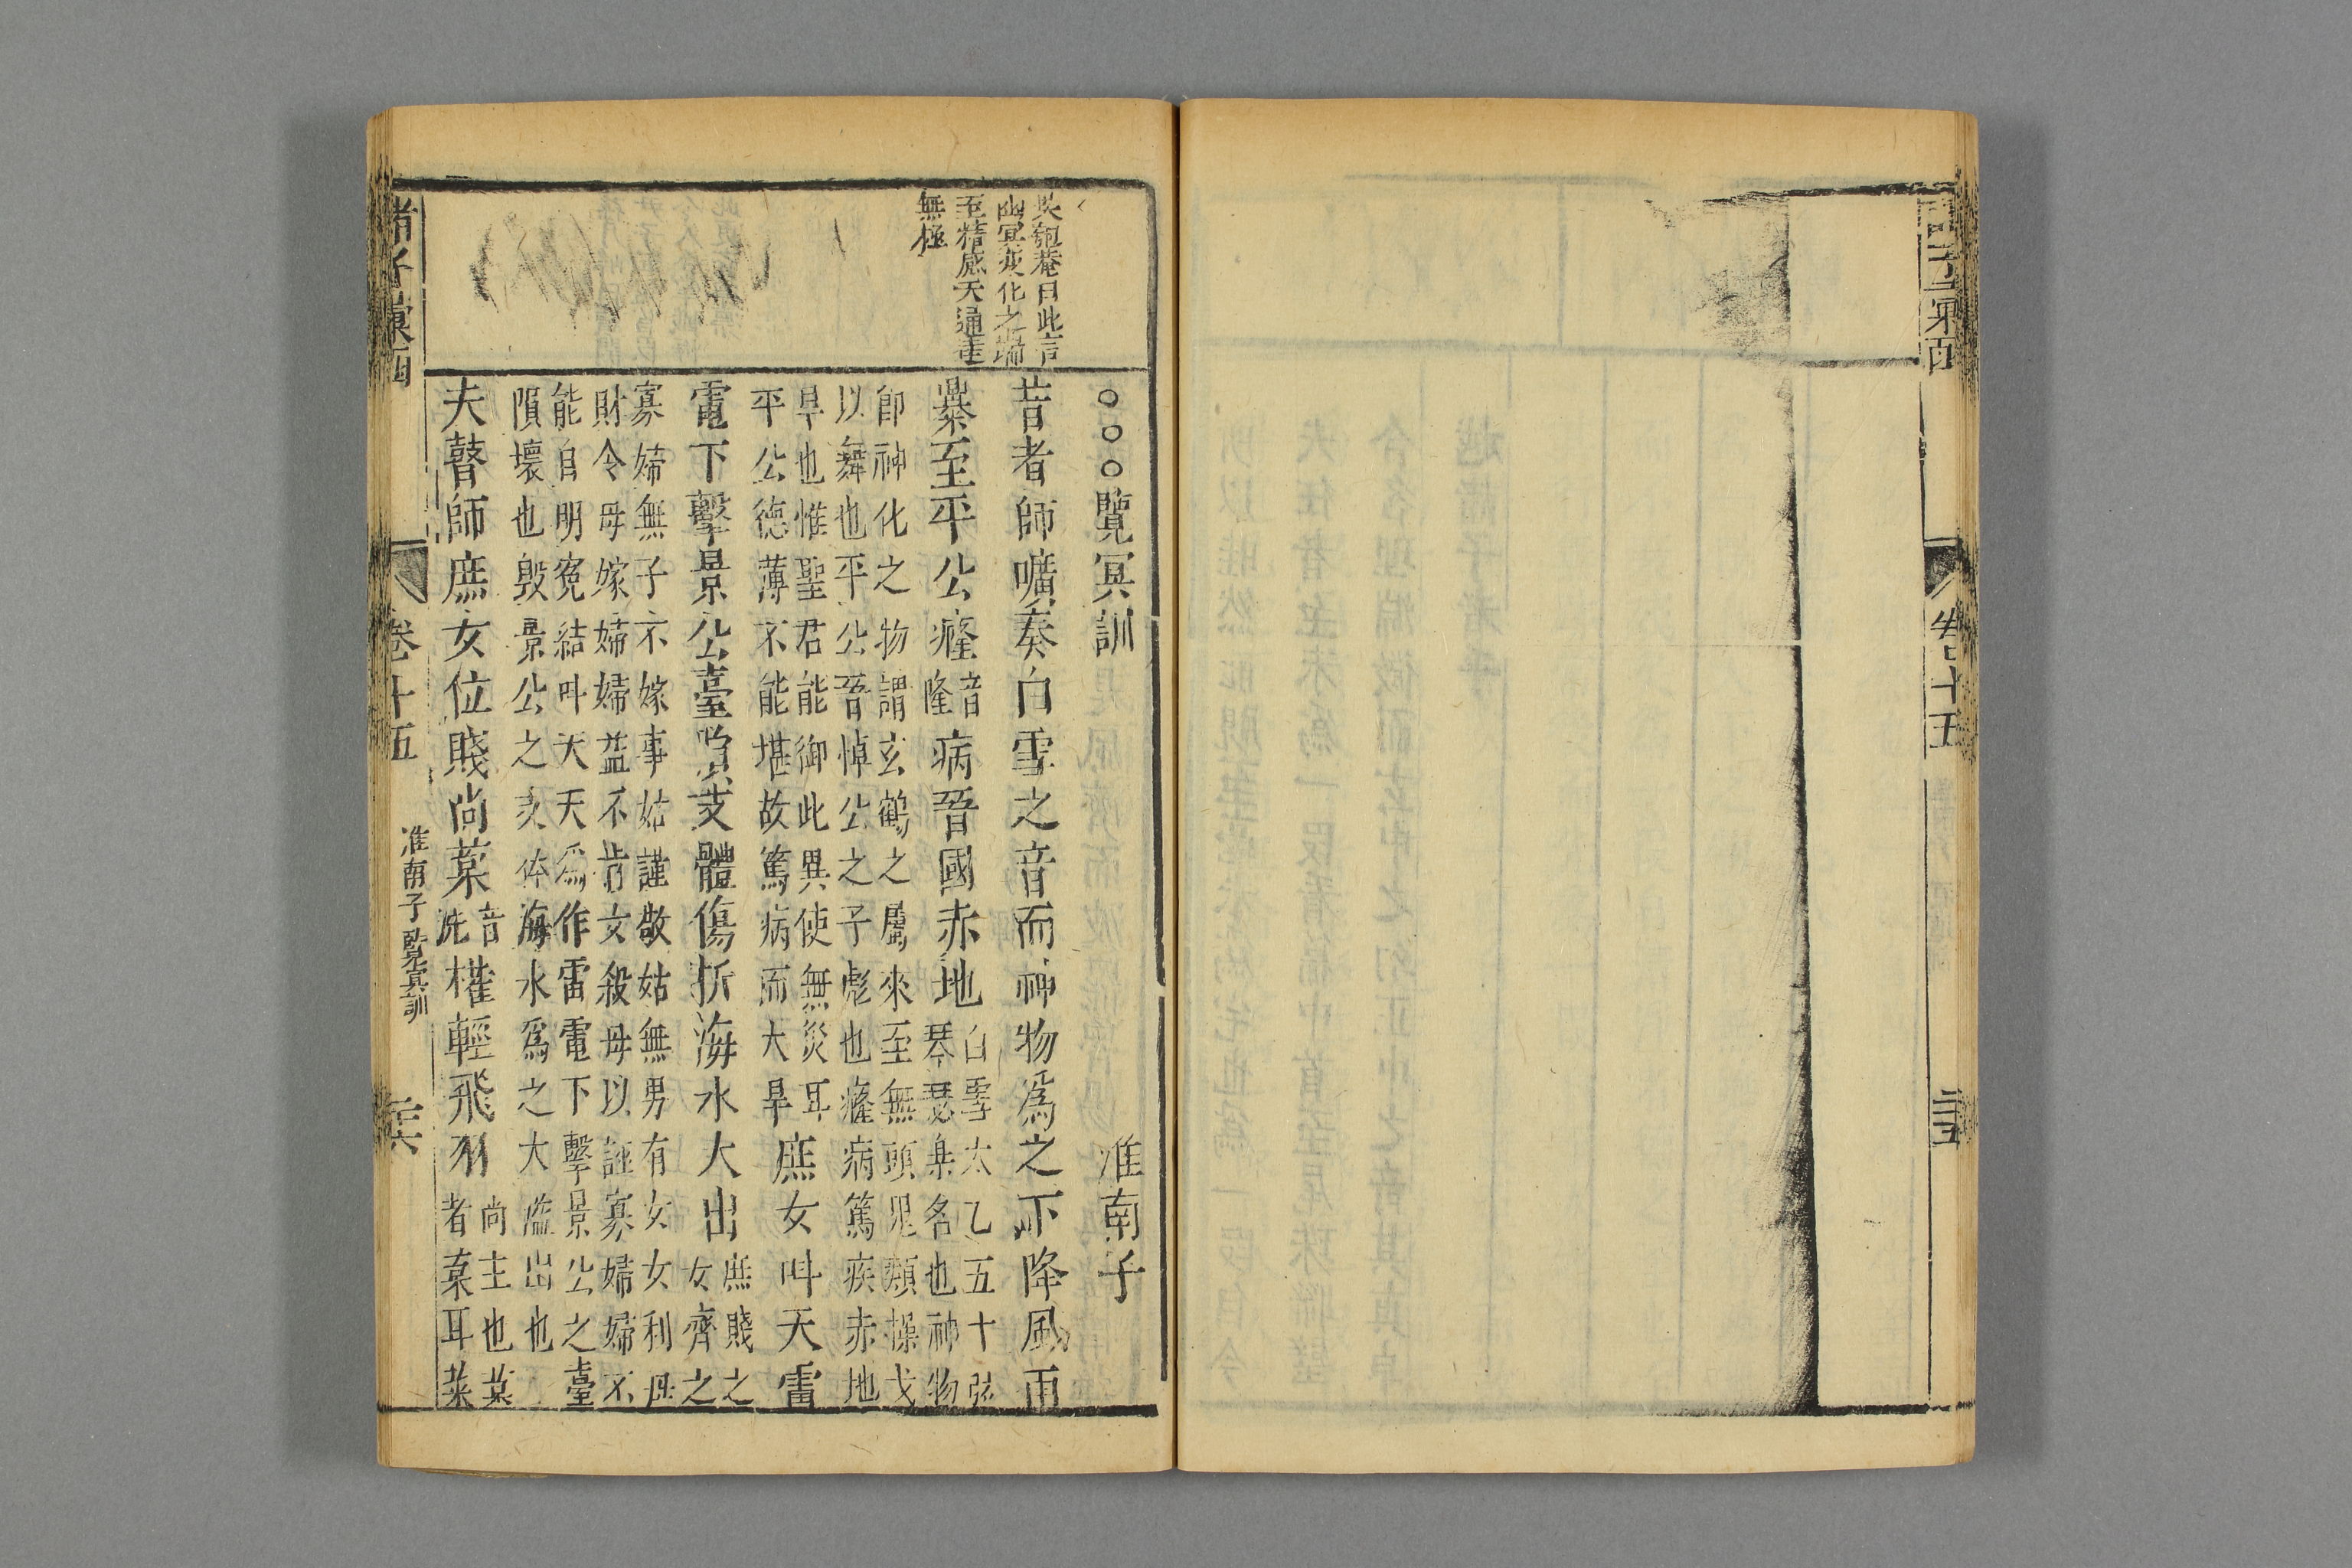 諸子彙函
卷十五
二十五
吳匏菴曰此言
幽冥變化之端
至精感天通達
無極
○○○覽冥訓
淮南子
昔者師曠奏白雪之音而神物爲之下降風雨
暴至平公癃
音
隆
病晉國赤地
白雪太乙五十弦
琴瑟樂名也神物
即神化之物謂玄鶴之屬來至無頭鬼類操戈
以舞也平公晉悼公之子彪也癃病篤疾赤地
旱也惟聖君能御此異使無災耳
平公德薄不能堪故篤病而大旱
庶女叫天雷
電下擊景公臺隕支體傷折海水大出
庶賤之
女齊之
寡婦無子不嫁事姑謹敬姑無男有女女利母
財令母嫁婦婦益不肯女殺母以誣寡婦婦不
能自明冤結叫天天爲作雷電下擊景公之臺
隕壞也毀景公之支体海水爲之大溢出也
夫瞽師庶女位賤尚葈
音
洗
權輕飛羽
尚主也葈
者葈耳菜
諸子彙函
卷十五
淮南子覽冥訓
二十六